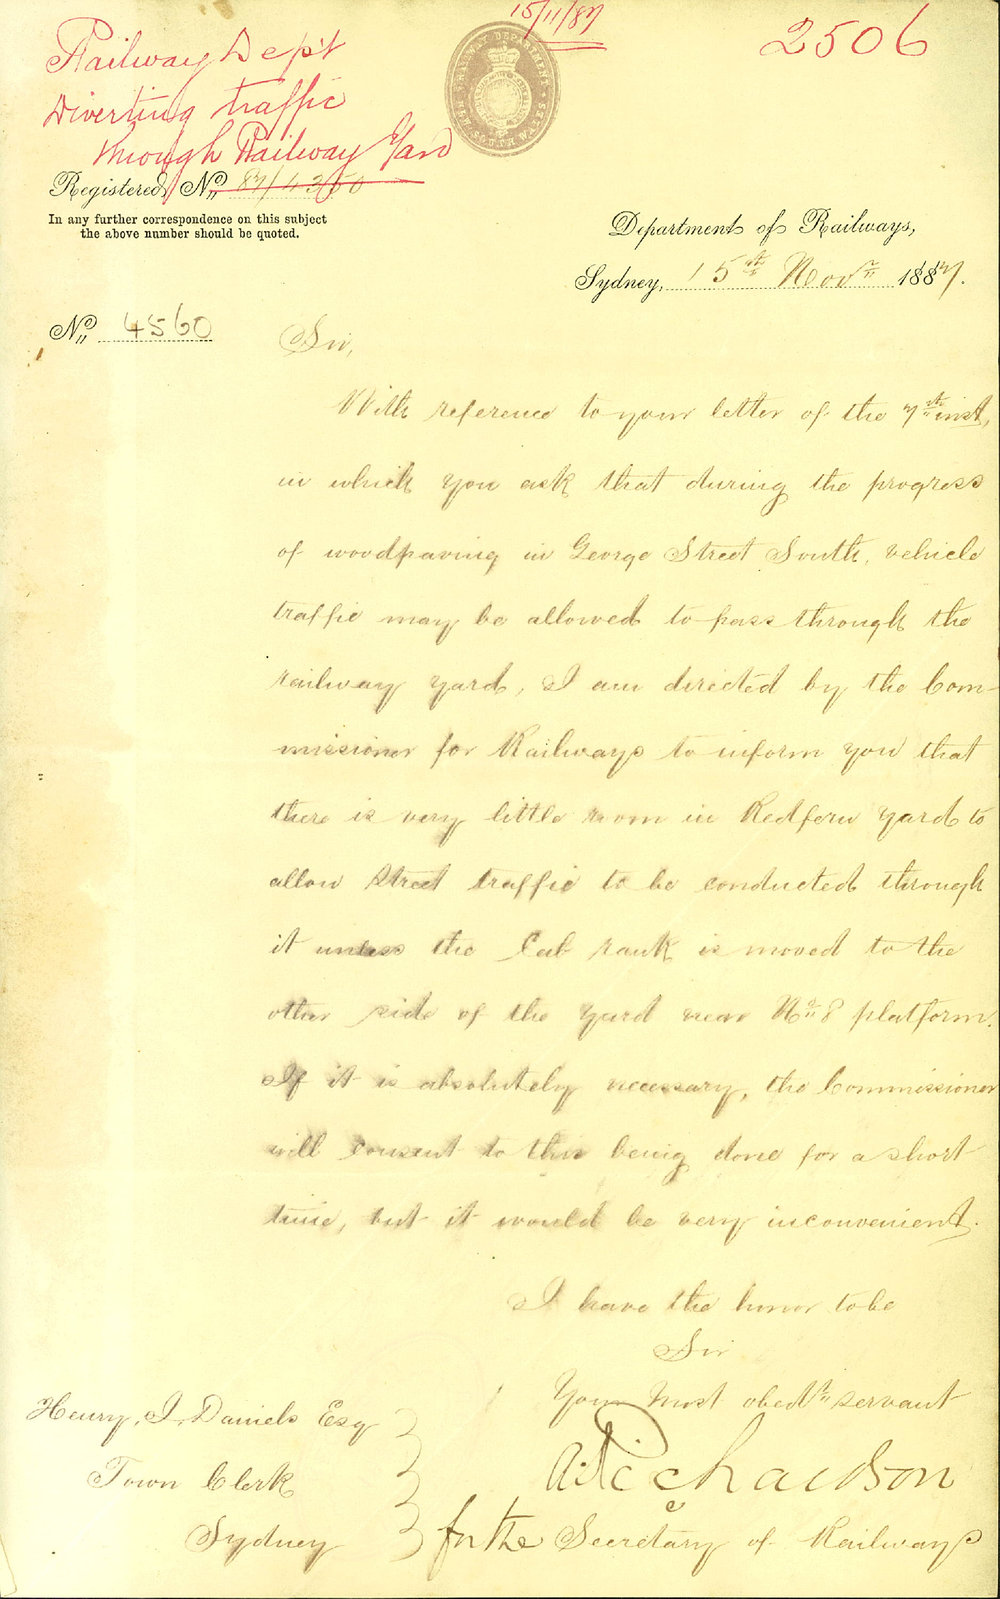 15/11/87
2506
Railway Dep't
Diverting traffic
through Railway Yard
RAILWAY DEPARTMENT
NEW SOUTH WALES
Registered No 87/4350
In any further correspondence on this subject
the above number should be quoted.
Department of Railways,
Sydney, 15th Novr 1887.
No 4560
Sir,
With reference to your letter of the 7th inst,
in which you ask that during the progress
of woodpaving in George Street South, vehicle
traffic may be allowed to pass through the
railway yard, I am directed by the Com-
missioner for Railways to inform you that
there is very little room in Redfern Yard to
allow Street traffic to be conducted through
it unless the Cab rank is moved to the
other side of the Yard near No 8 platform.
If it is absolutely necessary, the Commissioner
will consent to this being done for a short
time, but it would be very inconvenient.
I have the honor to be
Sir
Your most obedt servant
A. Richardson
for the Secretary of Railways
Henry. J. Daniels Esq
Town Clerk
Sydney